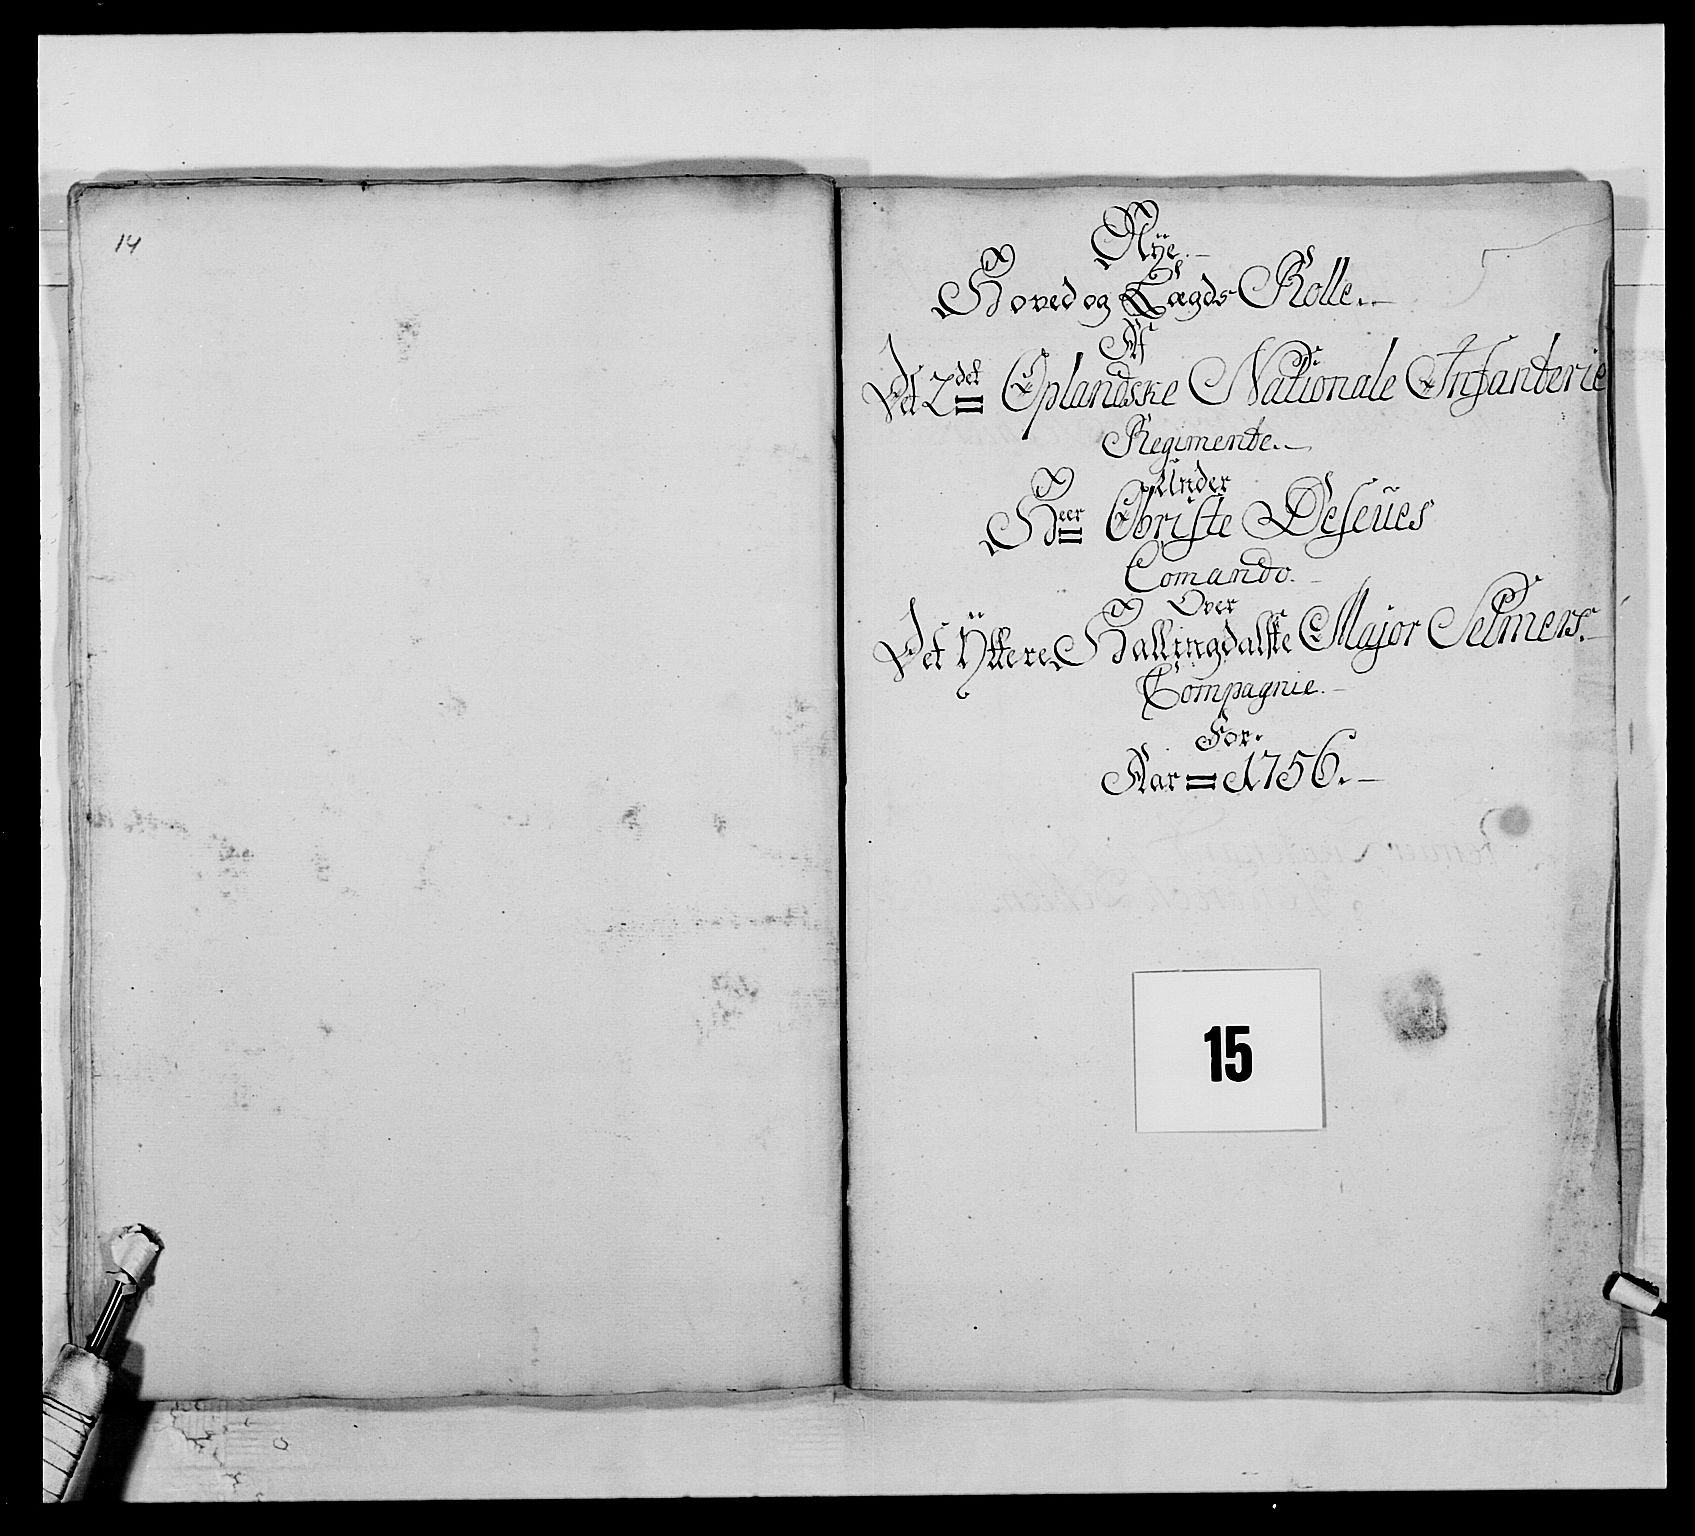 14
Nÿe.
Hoved og Lægds Rolle.
Af
Det 2det Oplandske Nationale Infanterie
Regimente.
Under
Heer Obriste Deseües
Comando.
Over
Det Ÿttere Hallingdalske Major Selmers.
Compagnie.
For.
Aar = 1756.
15